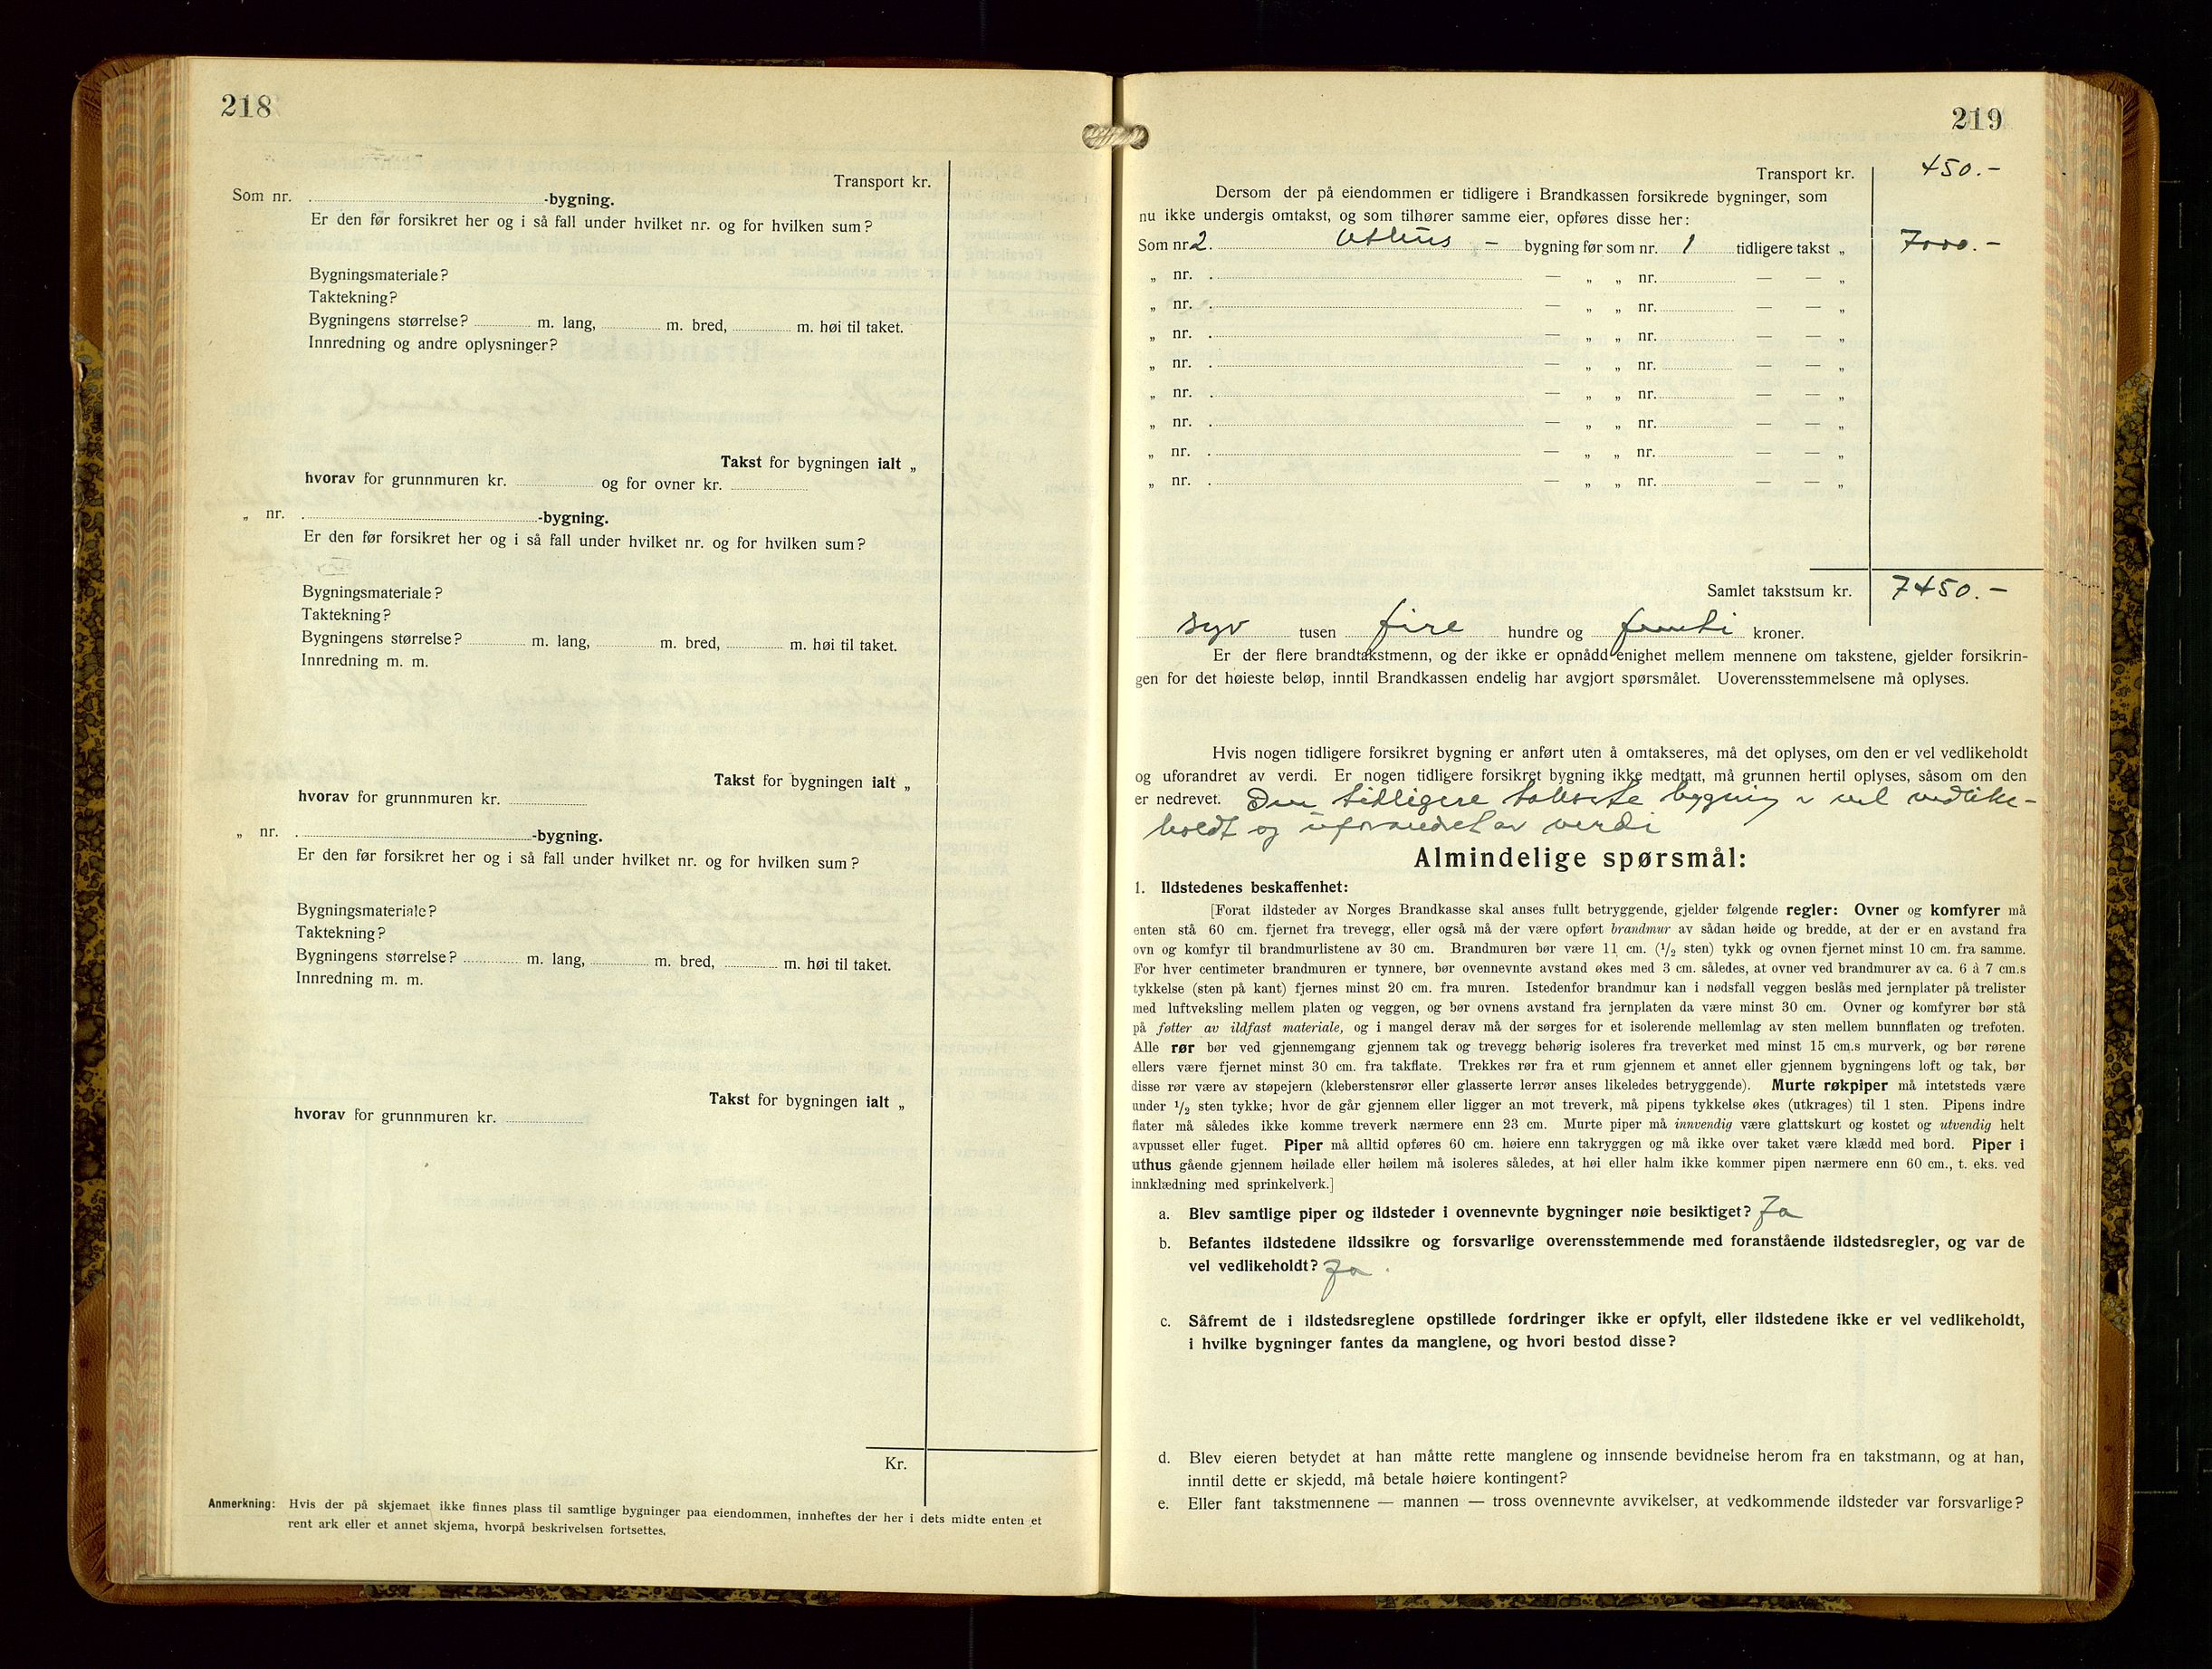 218
Transport kr.
Som nr. -bygning.
Er den før forsikret her og i så fall under hvilket nr. og for hvilken sum?
Bygningsmateriale?
Taktekning?
Bygningens størrelse? m. lang, m. bred, m. høi til taket.
Innredning og andre oplysninger?
Takst for bygningen ialt „
hvorav for grunnmuren kr. og for ovner kr.
„ nr. -bygning.
Er den før forsikret her og i så fall under hvilket nr. og for hvilken sum?
Bygningsmateriale?
Taktekning?
Bygningens størrelse? m. lang, m. bred, m. høi til taket.
Innredning m. m.
Takst for bygningen ialt „
hvorav for grunnmuren kr.
„ nr. -bygning.
Er den før forsikret her og i så fall under hvilket nr. og for hvilken sum?
Bygningsmateriale?
Taktekning?
Bygningens størrelse? m. lang, m. bred, m. høi til taket.
Innredning m. m.
Takst for bygningen ialt „
hvorav for grunnmuren kr.
Kr.
Anmerkning: Hvis der på skjemaet ikke finnes plass til samtlige bygninger paa eiendommen, innheftes der her i dets midte enten et
rent ark eller et annet skjema, hvorpå beskrivelsen fortsettes.
219
Transport kr. 450.-
Dersom der på eiendommen er tidligere i Brandkassen forsikrede bygninger, som
nu ikke undergis omtakst, og som tilhører samme eier, opføres disse her:
Som nr. 2. Uthus - bygning før som nr. 1 tidligere takst „ 7000.-
„ nr. . — „ „ nr. — — „
„ nr. . — „ „ nr. — — „
„ nr. . — „ „ nr. — — „
„ nr. . — „ „ nr. — — „
„ nr. . — „ „ nr. — — „
„ nr. . — „ „ nr. — — „
„ nr. . — „ „ nr. — — „
„ nr. . — „ „ nr. — — „
Samlet takstsum kr. 7450.-
syv tusen fire hundre og femti kroner.
Er der flere brandtakstmenn, og der ikke er opnådd enighet mellem mennene om takstene, gjelder forsikrin-
gen for det høieste beløp, inntil Brandkassen endelig har avgjort spørsmålet. Uoverensstemmelsene må oplyses.
Hvis nogen tidligere forsikret bygning er anført uten å omtakseres, må det oplyses, om den er vel vedlikeholdt
og uforandret av verdi. Er nogen tidligere forsikret bygning ikke medtatt, må grunnen hertil oplyses, såsom om den
er nedrevet. Den tidligere takserte bygning er vel vedlike-
holdt og uforandret av verdi
Almindelige spørsmål:
1. Ildstedenes beskaffenhet:
[Forat ildsteder av Norges Brandkasse skal anses fullt betryggende, gjelder følgende regler: Ovner og komfyrer må
enten stå 60 cm. fjernet fra trevegg, eller også må der være opført brandmur av sådan høide og bredde, at der er en avstand fra
ovn og komfyr til brandmurlistene av 30 cm. Brandmuren bør være 11 cm. (1/2 sten) tykk og ovnen fjernet minst 10 cm. fra samme.
For hver centimeter brandmuren er tynnere, bør ovennevnte avstand økes med 3 cm. således, at ovner ved brandmurer av ca. 6 à 7 cm.s
tykkelse (sten på kant) fjernes minst 20 cm. fra muren. Istedenfor brandmur kan i nødsfall veggen beslås med jernplater på trelister
med luftveksling mellem platen og veggen, og bør ovnens avstand fra jernplaten da være minst 30 cm. Ovner og komfyrer bør stå
på føtter av ildfast materiale, og i mangel derav må der sørges for et isolerende mellemlag av sten mellem bunnflaten og trefoten.
Alle rør bør ved gjennemgang gjennem tak og trevegg behørig isoleres fra treverket med minst 15 cm.s murverk, og bør rørene
ellers være fjernet minst 30 cm. fra takflate. Trekkes rør fra et rum gjennem et annet eller gjennem bygningens loft og tak, bør
disse rør være av støpejern (kleberstensrør eller glasserte lerrør anses likeledes betryggende). Murte røkpiper må intetsteds være
under 1/2 sten tykke; hvor de går gjennem eller ligger an mot treverk, må pipens tykkelse økes (utkrages) til 1 sten. Pipens indre
flater må således ikke komme treverk nærmere enn 23 cm. Murte piper må innvendig være glattskurt og kostet og utvendig helt
avpusset eller fuget. Piper må alltid opføres 60 cm. høiere enn takryggen og må ikke over taket være klædd med bord. Piper i
uthus gående gjennem høilade eller høilem må isoleres således, at høi eller halm ikke kommer pipen nærmere enn 60 cm., t. eks. ved
innklædning med sprinkelverk.]
a. Blev samtlige piper og ildsteder i ovennevnte bygninger nøie besiktiget? Ja
b. Befantes ildstedene ildssikre og forsvarlige overensstemmende med foranstående ildstedsregler, og var de
vel vedlikeholdt? Ja.
c. Såfremt de i ildstedsreglene opstillede fordringer ikke er opfylt, eller ildstedene ikke er vel vedlikeholdt,
i hvilke bygninger fantes da manglene, og hvori bestod disse?
d. Blev eieren betydet at han måtte rette manglene og innsende bevidnelse herom fra en takstmann, og at han,
inntil dette er skjedd, må betale høiere kontingent?
e. Eller fant takstmennene — mannen — tross ovennevnte avvikelser, at vedkommende ildsteder var forsvarlige?